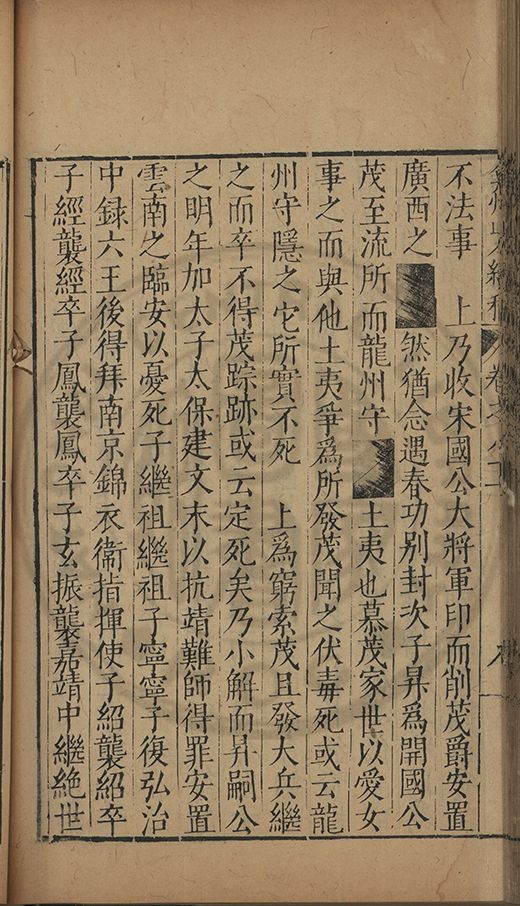 不法事　上乃收宋國公大將軍印而削茂爵安置
廣西之　然猶念遇春功別封次子昇爲開國公
茂至流所而龍州守　土夷也慕茂家世以愛女
事之而與他土夷爭爲所發茂聞之伏毒死或云龍
州守隱之它所實不死　上爲窮索茂且發大兵繼
之而卒不得茂踪跡或云定死矣乃小解而昇嗣公
之明年加太子太保建文末以抗靖難師得罪安置
雲南之臨安以憂死子繼祖繼祖子寧寧子復弘治
中録六王後得拜南京錦衣衞指揮使子紹襲紹卒
子經襲經卒子鳳襲鳳卒子玄振襲嘉靖中繼絶世